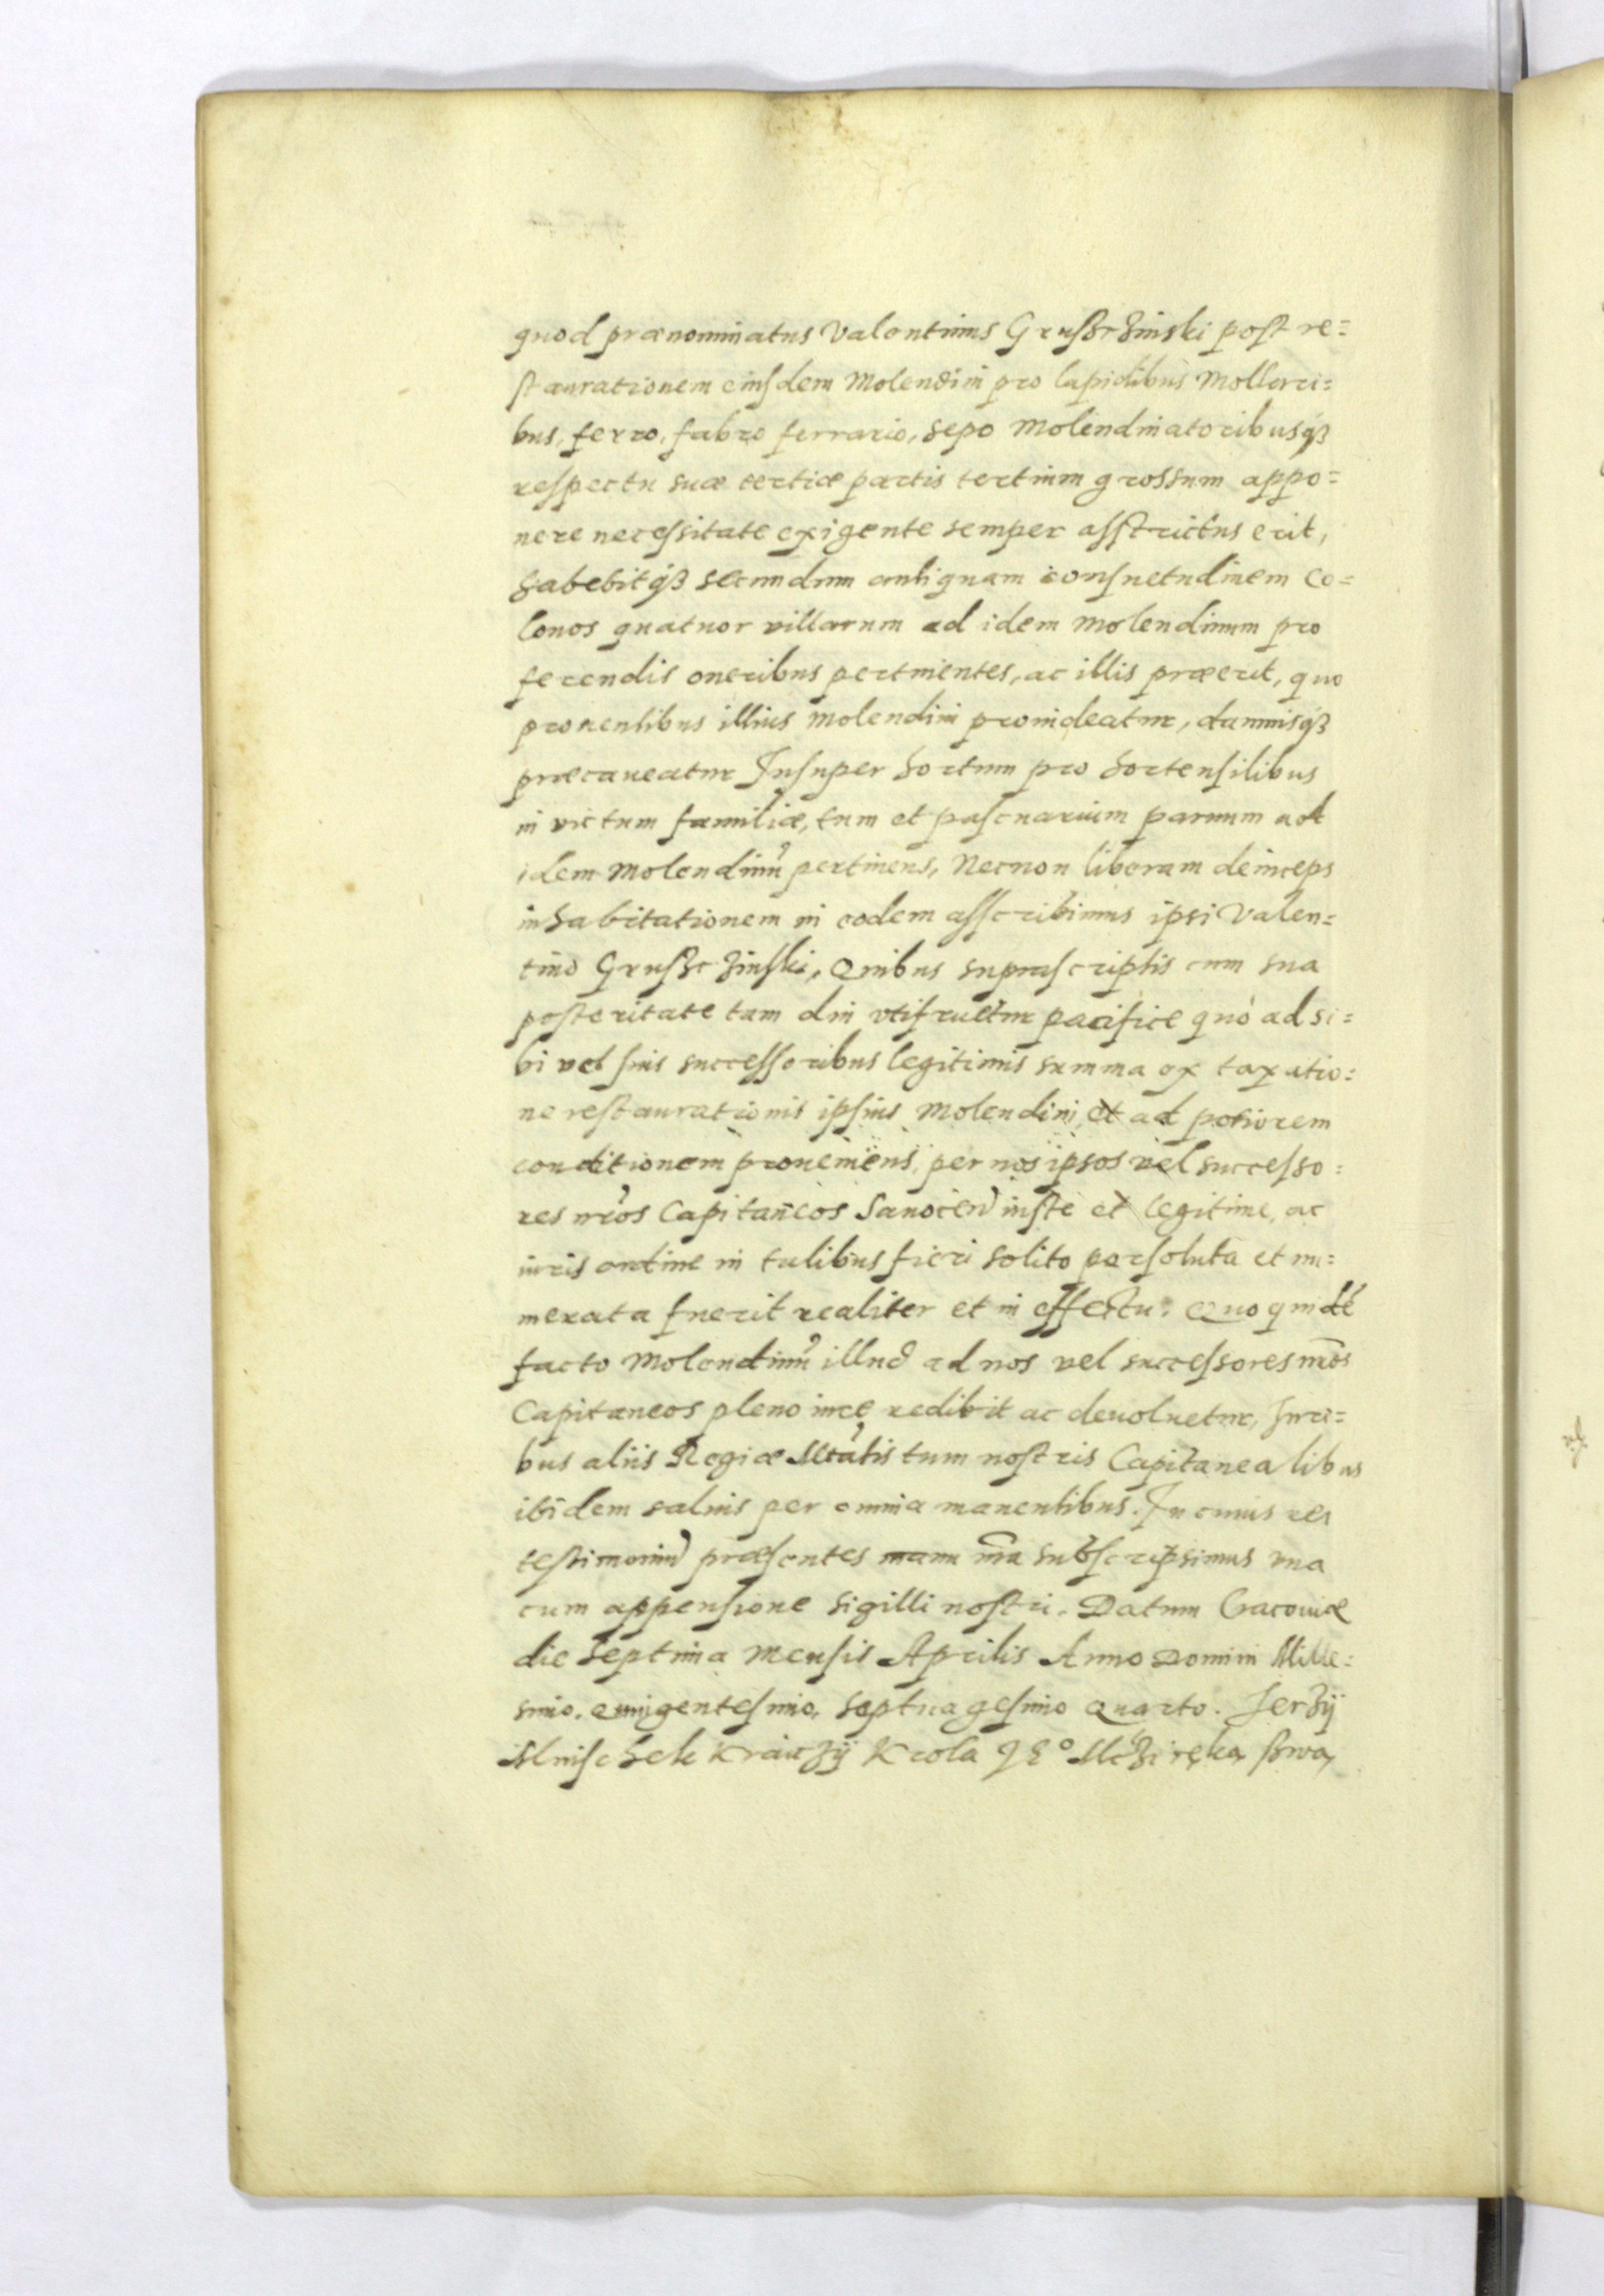 quod prænominatus Valentinus Grußczinski post re=
staurationem eiusdem Molendini pro lapidibus Mollari=
bus, ferro, fabro ferrario, sepo Molendinatoribusqꝫ
respectu suæ tertiæ partis tertium grossum appo=
nere necessitate exigente semper asstrictus erit,
habebitqꝫ secundum antiquam consuetudinem Co=
lonos quatuor villarum ad idem Molendinum pro
ferendis oneribus pertinentes, ac illis præerit, quo
prouentibus illius Molendini prouideatur, damnisqꝫ
præcaueatur Insuper hortum pro hortensilibus
in victum familiæ, tum et pascuarium paruum ad
idem Molendinū pertinens, Necnon liberam deinceps
inhabitationem in eodem asscribimus ipsi Valen=
tino Grußczinski, Quibus suprascriptis cum sua
posteritate tam diu vtifruetur pacifice quò ad si=
bi vel suis successoribus legitimis summa ex taxatio=
ne restaurationis ipsius Molendini, et ad potiorem
conditionem proueniens, per nos ipsos vel successo=
res nr̃os Capitaneos Sanocen̄ iuste et legitime, ac
iuris ordine in talibus fieri solito persoluta et nu=
merata fuerit realiter et in effectu. Quo quidē
facto Molendinū illud ad nos vel successores nr̃os
Capitaneos pleno iure redibit ac deuoluetur, Juri=
bus aliis Regiæ Mtātis tum nostris Capitanealibus
ibidem saluis per omnia manentibus. In cuius rei
testimoniū præsentes manu nr̃a subscripsimus vna
cum appensione sigilli nostri. Datum Cracouiæ
die Septima Mensis Aprilis Anno Domini Mille=
simo, Quingentesimo, Septuagesimo Quarto. Jerzÿ
Mnischek Kraiczÿ Krola Jᵒ Mczi ręką swą